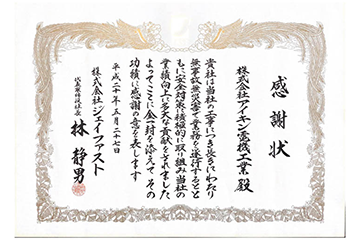 感謝状
株式会社アイキン電機工業 殿
貴社は当社の工事につき永きにわたり
無事故無災害で業務を遂行すると
もに安全対策に積極的に取り組み当社の
業績向上に多大な貢献をされました
よってここに金一封を添えてその
功績に感謝の意を表します
平成二十年五月二十七日
株式会社ジェイファスト
代表取締役社長
林 静男